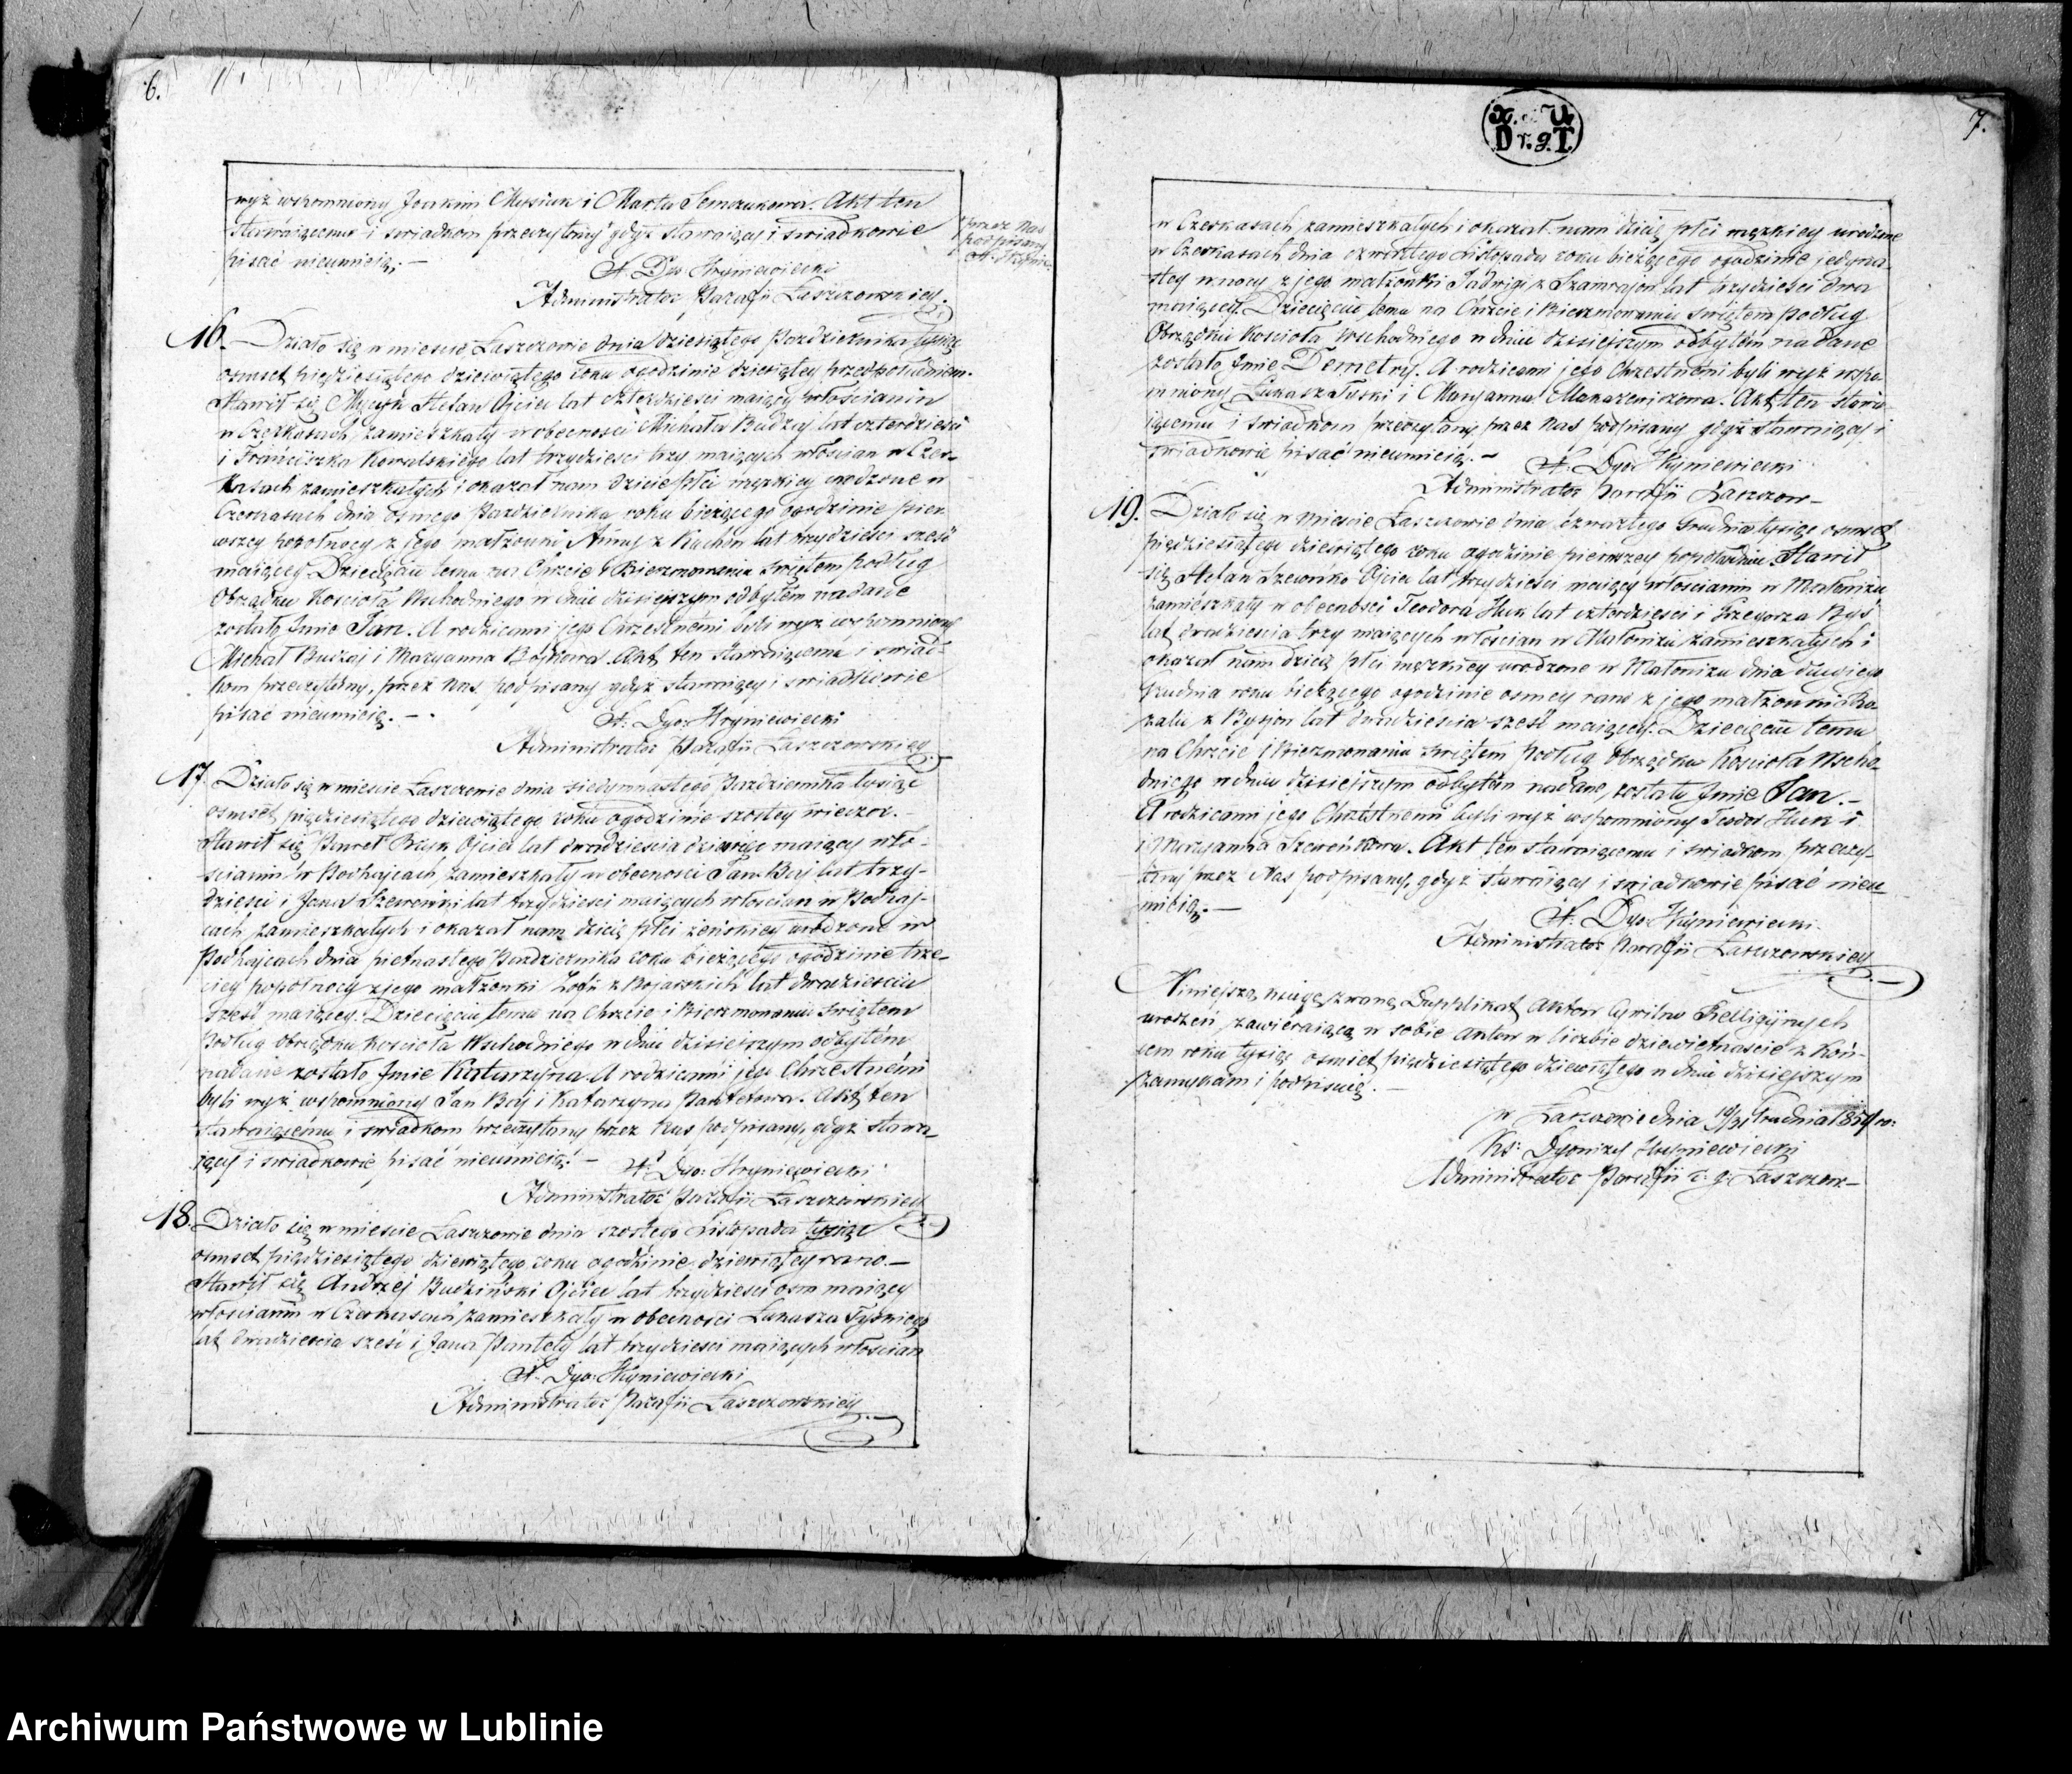 6.
wyż wspomniony Joachim Musiuk i Marta Semczukowa. Akt ten
stawaiącemu i swiadkom przeczytany gdyż stawaiący i swiadkowie
pisać nieumieią. —
przez Nas
podpisany
X. Dyo: Hryniewiecki
Administrator Parafii Łaszczowskiey.
16. Działo się w mieście Łaszczowie dnia dziesiątego Pazdziernika tysiąc
osmset pięćdziesiątego dziewiątego roku ogodzinie dziesiątey przedpołudniem.
Stawił się Stefan Ojciec lat czterdziesci maiący włoscianin
w Czerkasach zamieszkały w obecnosci Michała Buczaj lat czterdziesci
i Franciszka Kowalskiego lat trzydziesci trzy maiących włoscian w Czer-
kasach zamieszkałych i okazał nam dziecie płci męzkiey urodzone w
Czerkasach dnia osmego Pazdziernika roku bieżącego ogodzinie pier-
wszey popołnocy z jego małżonki Anny z lat trzydziesci sześć
maiącey. Dziecięciu temu na Chrzcie i Bierzmowaniu Swiętem podług
Obrządku Kościoła Wschodniego w dniu dzisieyszym odbytem nadane
zostało Imie Jan. A rodzicami jego Chrzestnemi byli wyż wspomniony
Michał Buczaj i Maryanna Bojkowa. Akt ten stawaiącemu i swiad-
kom przeczytany, przez Nas podpisany gdyż stawaiący i swiadkowie
pisać nieumieią. —
X. Dyo: Hryniewiecki
Administrator Parafii Łaszczowskiey
17. Działo się w mieście Łaszczowie dnia siedymnastego Pazdziernika tysiąc
osmset pięćdziesiątego dziewiątego roku ogodzinie szostey wieczor. —
Stawił się Paweł Ojciec lat dwadziescia dziewięć maiący wło-
scianin w Podhajcach zamieszkały w obecnosci Jana Baj lat trzy-
dziesci i Jana lat trzydziesci maiących włoscian w Podhaj-
cach zamieszkałych i okazał nam dziecię płci żeńskiey urodzone w
Podhajcach dnia pietnastego Pazdziernika roku bieżącego ogodzinie trze-
ciey popołnocy z jego małżonki Zofii z lat dwadziescia
sześć maiącey. Dziecięciu temu na Chrzcie i Bierzmowaniu Swiętem
Podług Obrządku Kościoła Wschodniego w dniu dzisieyszym odbytem
nadane zostało Imie Katarzyna. A rodzicami jego Chrzestnemi
byli wyż wspomniony Jan Baj i Katarzyna Pantełowa. Akt ten
stawaiącemu i swiadkom przeczytany przez Nas podpisany, gdyż stawa-
iący i swiadkowie pisać nieumieią. —
X. Dyo: Hryniewiecki
Administrator Parafii Łaszczowskiey
18. Działo się w mieście Łaszczowie dnia szostego Listopada tysiąc
osmset pięćdziesiątego dziewiątego roku ogodzinie dziewiątey rano. —
Stawił się Andrzej Budziński Ojciec lat trzydziesci osm maiący
włoscianin w Czerkasach zamieszkały w obecnosci Łukasza
lat dwadziescia sześć i Jana Panteły lat trzydziesci maiących włoscian
X. Dyo: Hryniewiecki
Administrator Parafii Łaszczowskiey
7.
w Czerkasach zamieszkałych i okazał nam dziecię płci męzkiey urodzone
w Czerkasach dnia czwartego Listopada roku bieżącego ogodzinie jedyna-
stey w nocy z jego małżonki Jadwigi z lat trzydziesci dwa
maiącey. Dziecięciu temu na Chrzcie i Bierzmowaniu Swiętem podług
Obrządku Kościoła Wschodniego w dniu dzisieyszym odbytem nadane
zostało Imie Demetry. A rodzicami jego Chrzestnemi byli wyż wspo-
mniony Łukasz i Maryanna Makarewiczowa. Akt ten stawa-
iącemu i swiadkom przeczytany przez Nas podpisany gdyż stawaiący i
swiadkowie pisać nieumieią. —
X. Dyo: Hryniewiecki
Administrator Parafii Łaszczow—
19. Działo się w Mieście Łaszczowie dnia czwartego Grudnia tysiąc osmset
pięćdziesiątego dziewiątego roku ogodzinie pierwszey popołudniu. Stawił
się Stefan Ojciec lat trzydziesci maiący włoscianin w Małoniżu
zamieszkały w obecnosci Teodora Huk lat czterdziesci i Grzegorza Byś
lat dwadziescia trzy maiących włoscian w Małoniżu zamieszkałych i
okazał nam dziecię płci męzkiey urodzone w Małoniżu dnia drugiego
Grudnia roku bieżącego ogodzinie osmey rano z jego małżonki Ro-
zalii z Bysiów lat dwadziescia sześć maiącey. Dziecięciu temu
na Chrzcie i Bierzmowaniu Swiętem Podług Obrządku Kościoła Wscho-
dniego w dniu dzisieyszym odbytem nadane zostało Imie Jan. —
A rodzicami jego Chrzestnemi byli wyż wspomniony Teodor Huk i
Maryanna. Akt ten stawaiącemu i swiadkom przeczy-
tany przez Nas podpisany, gdyż stawaiący i swiadkowie pisać nieu-
mieią. —
X. Dyo: Hryniewiecki
Administrator Parafii Łaszczowskiey
Niniejszą księgę zwaną Dupplikat Aktow Cywilno Relligijnych
urodzeń zawieraiącą w sobie Aktow w liczbie dziewietnascie z koń-
cem roku tysiąc osmset pięćdziesiątego dziewiątego w dniu dzisieyszym
zamykam i podpisuię. —
w Łaszczowie dnia 19/31 Grudnia 1859 ro:
Ks: Dyonizy Hryniewiecki
Administrator Parafii r. g. Łaszczow—
D r. g. T.
Archiwum Państwowe w Lublinie